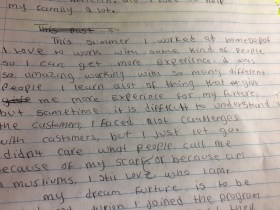 my family a lot.
This summer I worket at homedepot
I Love to work with some kind of people
so I can get more experience. I was
so amazing working with so many different
people I learn alot of thing that
me more experince for my future,
but sometime is difficult to understand
the customers I faced alot challenges
with customers, but I just let gox
I didnt care what people call me
because of my scarf or because am
muslium. I still Love who iam.
my dream furture is to be
when I joined the program